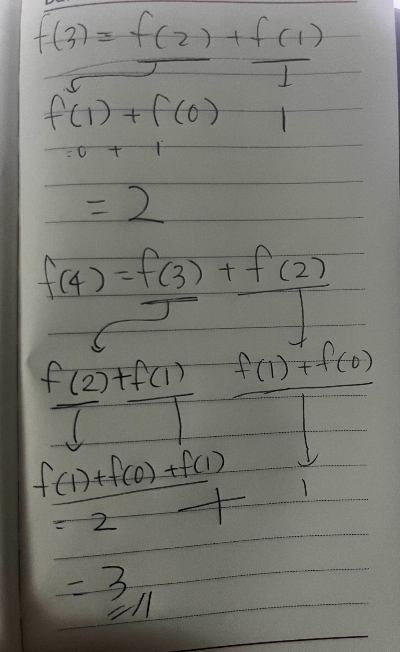 f(3) = f(2) + f(1)
1
f(1) + f(0) 1
=0 + 1
= 2
f(4) = f(3) + f(2)
f(2)+f(1) f(1) + f(0)
f(1)+f(0)+f(1) 1
= 2 +
= 3